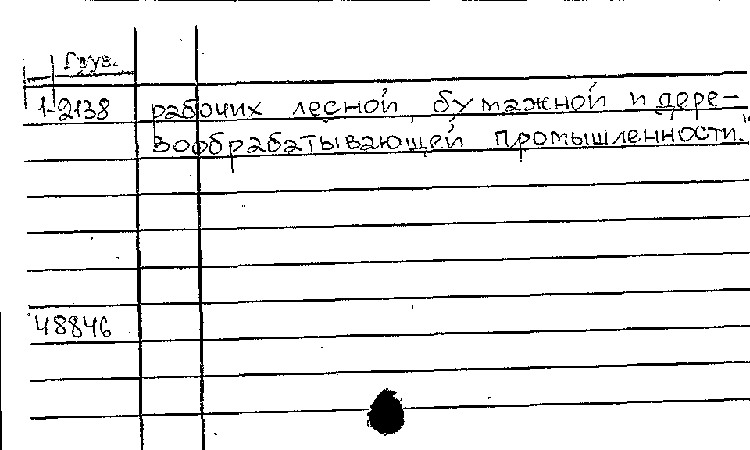 Груз.
1-2138 рабочих лесной, бумажной и дере-
вообрабатывающей промышленности."
48846